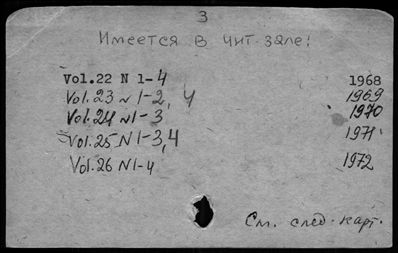 3
Имеется в чит. зале:
Vol.22 N 1-4 1968
Vol.23 N 1-2, 4 1969
Vol.24 N 1-3 1970
Vol.25 N 1-3,4 1971
Vol.26 N 1-4 1972
См. след. карт.